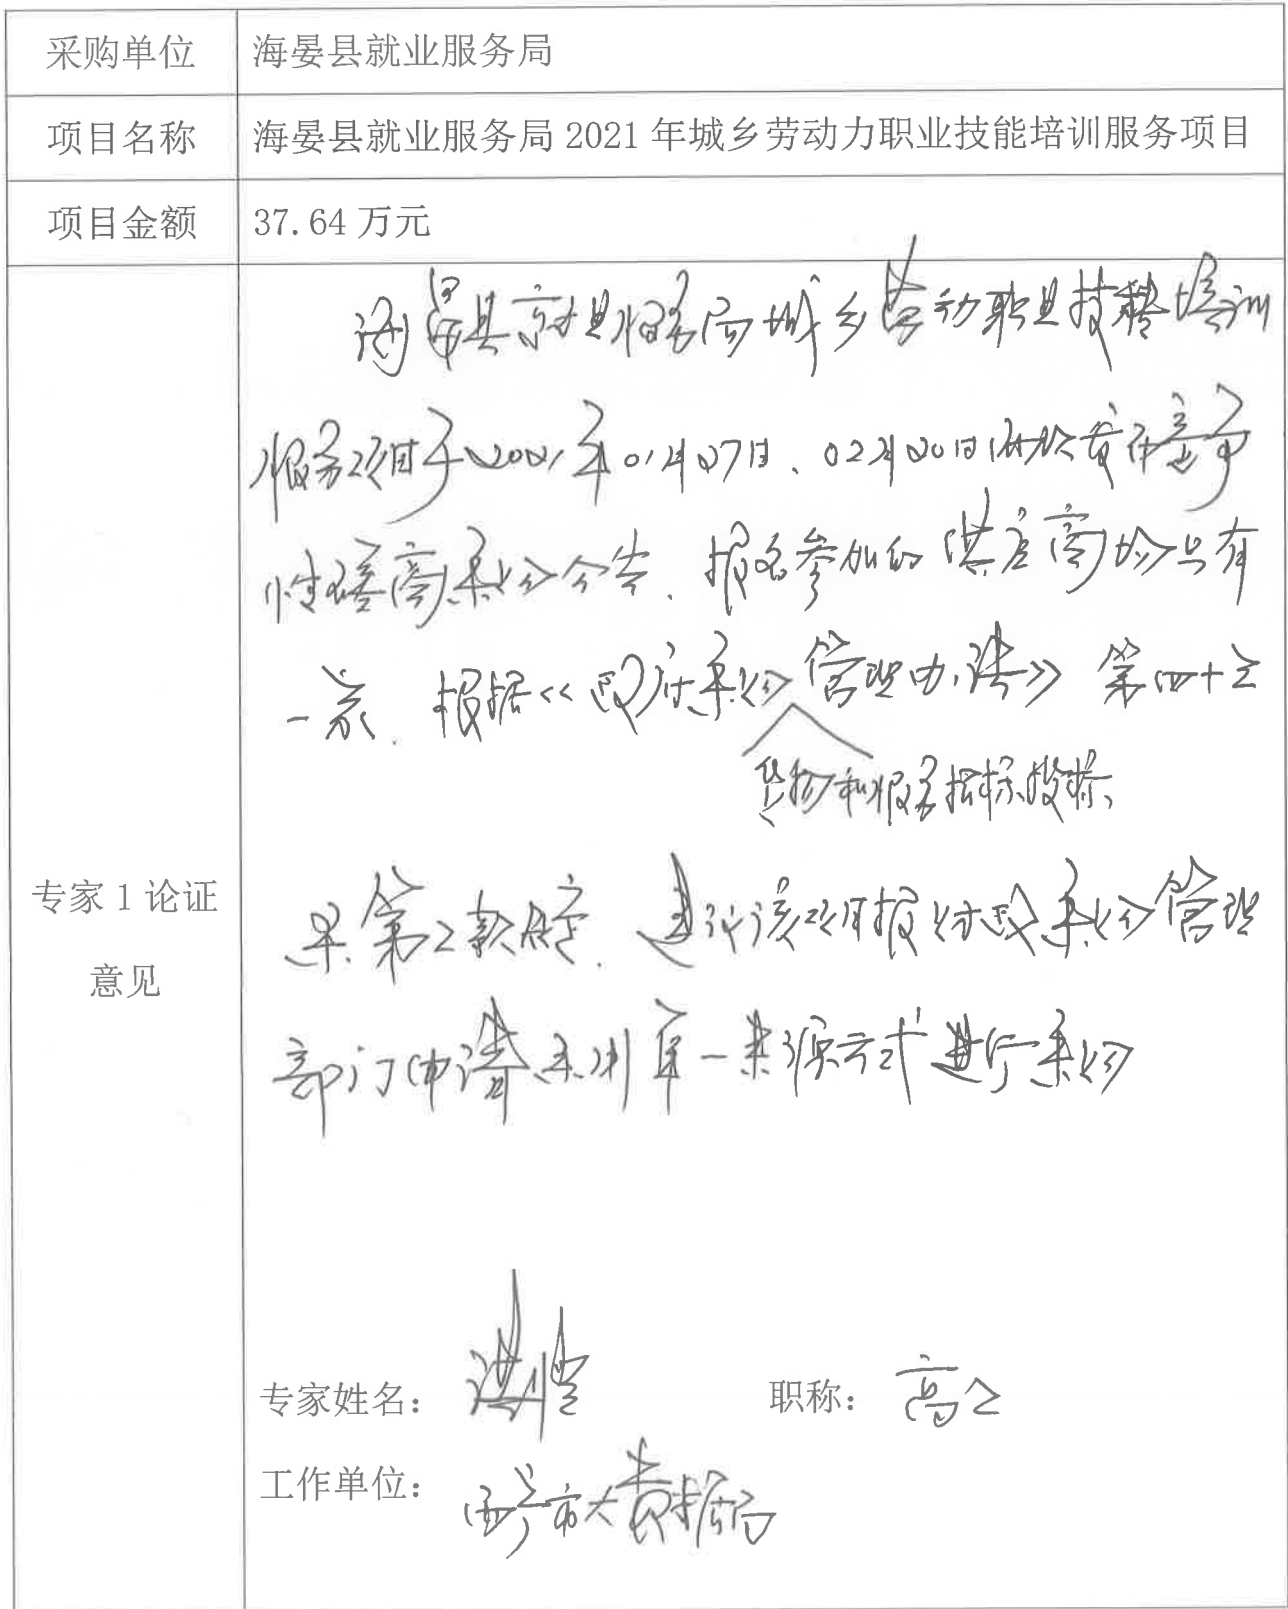 采购单位 海晏县就业服务局
项目名称 海晏县就业服务局 2021 年城乡劳动力职业技能培训服务项目
项目金额 37.64 万元
专家 1 论证意见
海晏县就业服务局城乡劳动职业技能培训
服务项目于2021年01月27日、02月20日两次发布竞争
性磋商采购公告、报名参加的供应商均只有
一家、根据《政府采购管理办法》第四十三
货物和服务招标投标
条第2款规定、建议该项目报财政采购管理
部门申请采用单一来源方式进行采购
专家姓名： 职称：高工
工作单位：西宁市大数据局